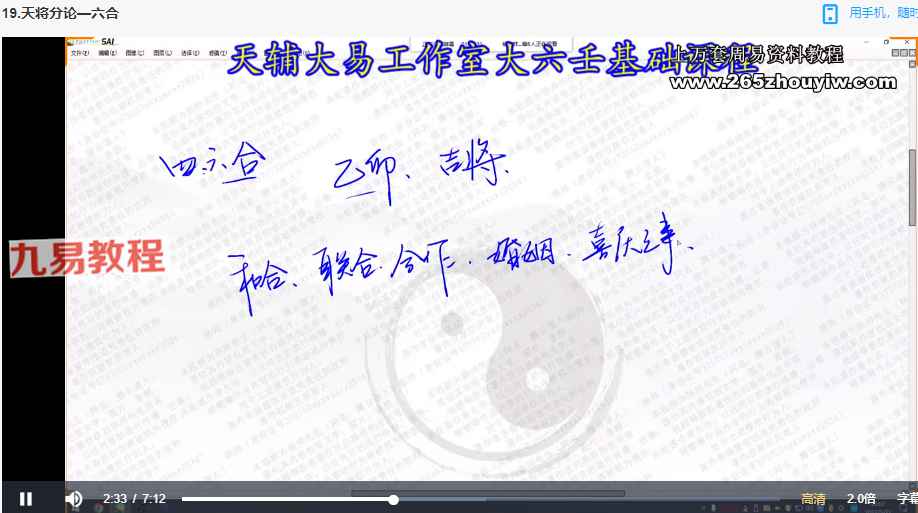 19.天将分论—六合
用手机，随时
SAI
文件(F) 编辑(E) 图像(C) 图层(L) 选择(S)
天辅大易工作室大六壬基础课程
上万套周易资料教程
www.265zhouyiw.com
四.六合 乙卯、吉将.
九易教程
和合、联合.合作.婚姻.喜庆之事、
2:33 / 7:12 高清 2.0倍 字幕